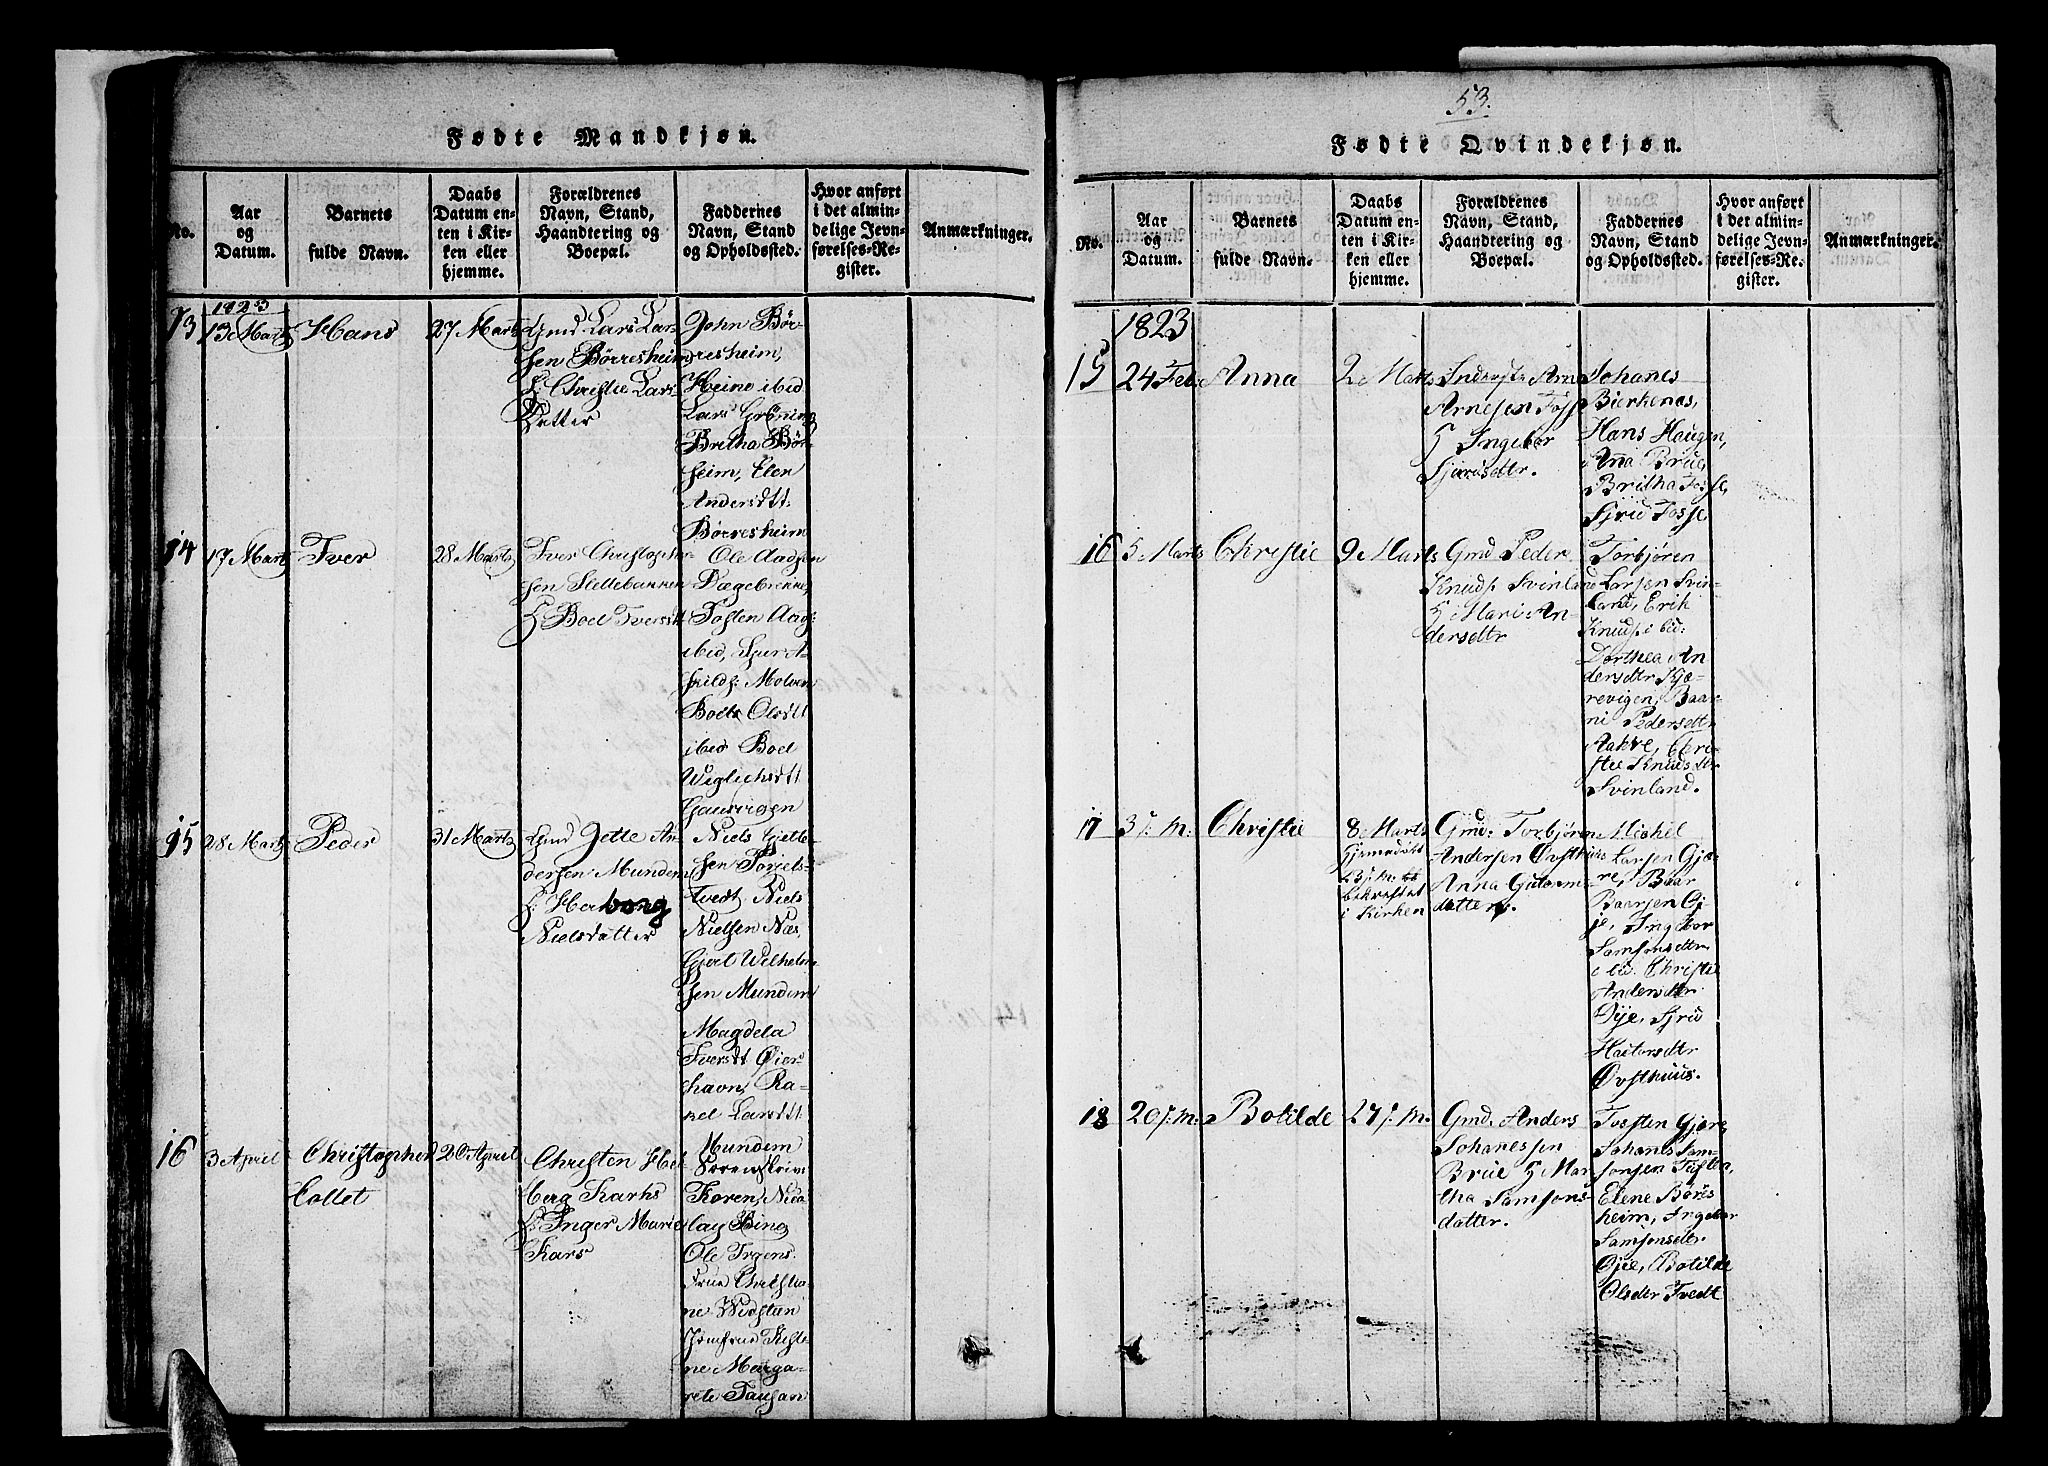 Fødte Mandkjøn.
No.
Aar
og
Datum.
Barnets
fulde Navn.
Daabs
Datum en-
ten i Kir-
ken eller
hjemme.
Forældrenes
Navn, Stand,
Haandtering og
Boepæl.
Faddernes
Navn, Stand
og Opholdssted.
Hvor anført
i det almin-
delige Jevn-
førelses-Re-
gister.
Anmærkninger.
1823
13
13 Marts
Hans
27 Marts
Gmd Lars Lar-
sen Børresheim
Christie Lars
Datter
John Bør-
resheim,
Heine ibid
Lars Grøning
Britha Bør-
heim, Elen
Andersdtt.
Børresheim
14
17 Marts
Iver
28 Marts
Iver Christopher
sen Slettebakken
H Boel Iversdt
Ole Aadsen
Dægebrekke,
Tosten
ibid,
Molven
Boels Olsdtt
ibid Boel
Wiglichsdtt
15
28 Marts
Peder
31 Marts
Gmd Jette An-
dersen Mundem
H. Herborg
Nielsdatter
Niels Gjelle-
sen Torrels-
tvedt Niels
Nielsen Næs,
Gjert Wilhelm
sen Mundem
Magdela
Iversdt Øier-
havn, Ra-
kel Larsdtt:
Mundem
16
3 April
Christopher
Collet
20 April
Christen Hel-
berg Karhs
H. Inger Marie
Kars
Koren, Nico
lay Bing
Ole Irgens
Frue Christia-
ne Widsteen
Jomfrue Kirste
ne Marga-
rete
53.
Fødte Qvindekjøn.
No.
Aar
og
Datum.
Barnets
fulde Navn.
Daabs
Datum en-
ten i Kir-
ken eller
hjemme.
Forældrenes
Navn, Stand,
Haandtering og
Boepæl.
Faddernes
Navn, Stand
og Opholdssted.
Hvor anført
i det almin-
delige Jevn-
førelses-Re-
gister.
Anmærkninger.
1823
15
24 Feb.
Anna
2 Marts
Inderste Arne
Arnesen Fosse
H Ingebor
Sjursdtr.
Johanes
Bierkenæs,
Hans Haugen,
Anna Brue,
Britha Fosse,
Sjrid Fosse
16
5 Marts
Christie
9 Marts
Gmd Peder
Knuds. Svinland
H Mari An-
dersdtr
Torbjøren
Larsen Svin-
land, Erik
Knuds. ibid:
Dorthea An
dersdtr Kjæ-
revigen, Baar-
ni Pedersdtr
Aakre, Chri-
stie Knudsdtr
Svinland.
17
3 s. m.
Christie
8 Marts
Hjemmedøbt
23 s. m.
bekræftet
i Kirken
Gmd. Torbjøren
Andersen Øvsthuus
Anna Gutorms
datter.
Michel
Larsen Gjæ-
re, Baar
Baarsen Øj-
je, Ingebor
Samsonsdtr
ibid. Christie
Andersdtr
Øije, Sjrid
Øvsthuus.
18
20 s. m.
Botilde
27 s. m.
Gmd. Anders
Johanessen
Brue H Mar-
tha Samsons-
datter.
Tosten Gjære,
Johanes Sam-
sonsen Tuften,
Elene Børes
heim, Ingebor
Samsonsdtr.
Øjee, Botilde
Olsdtr Tvedt